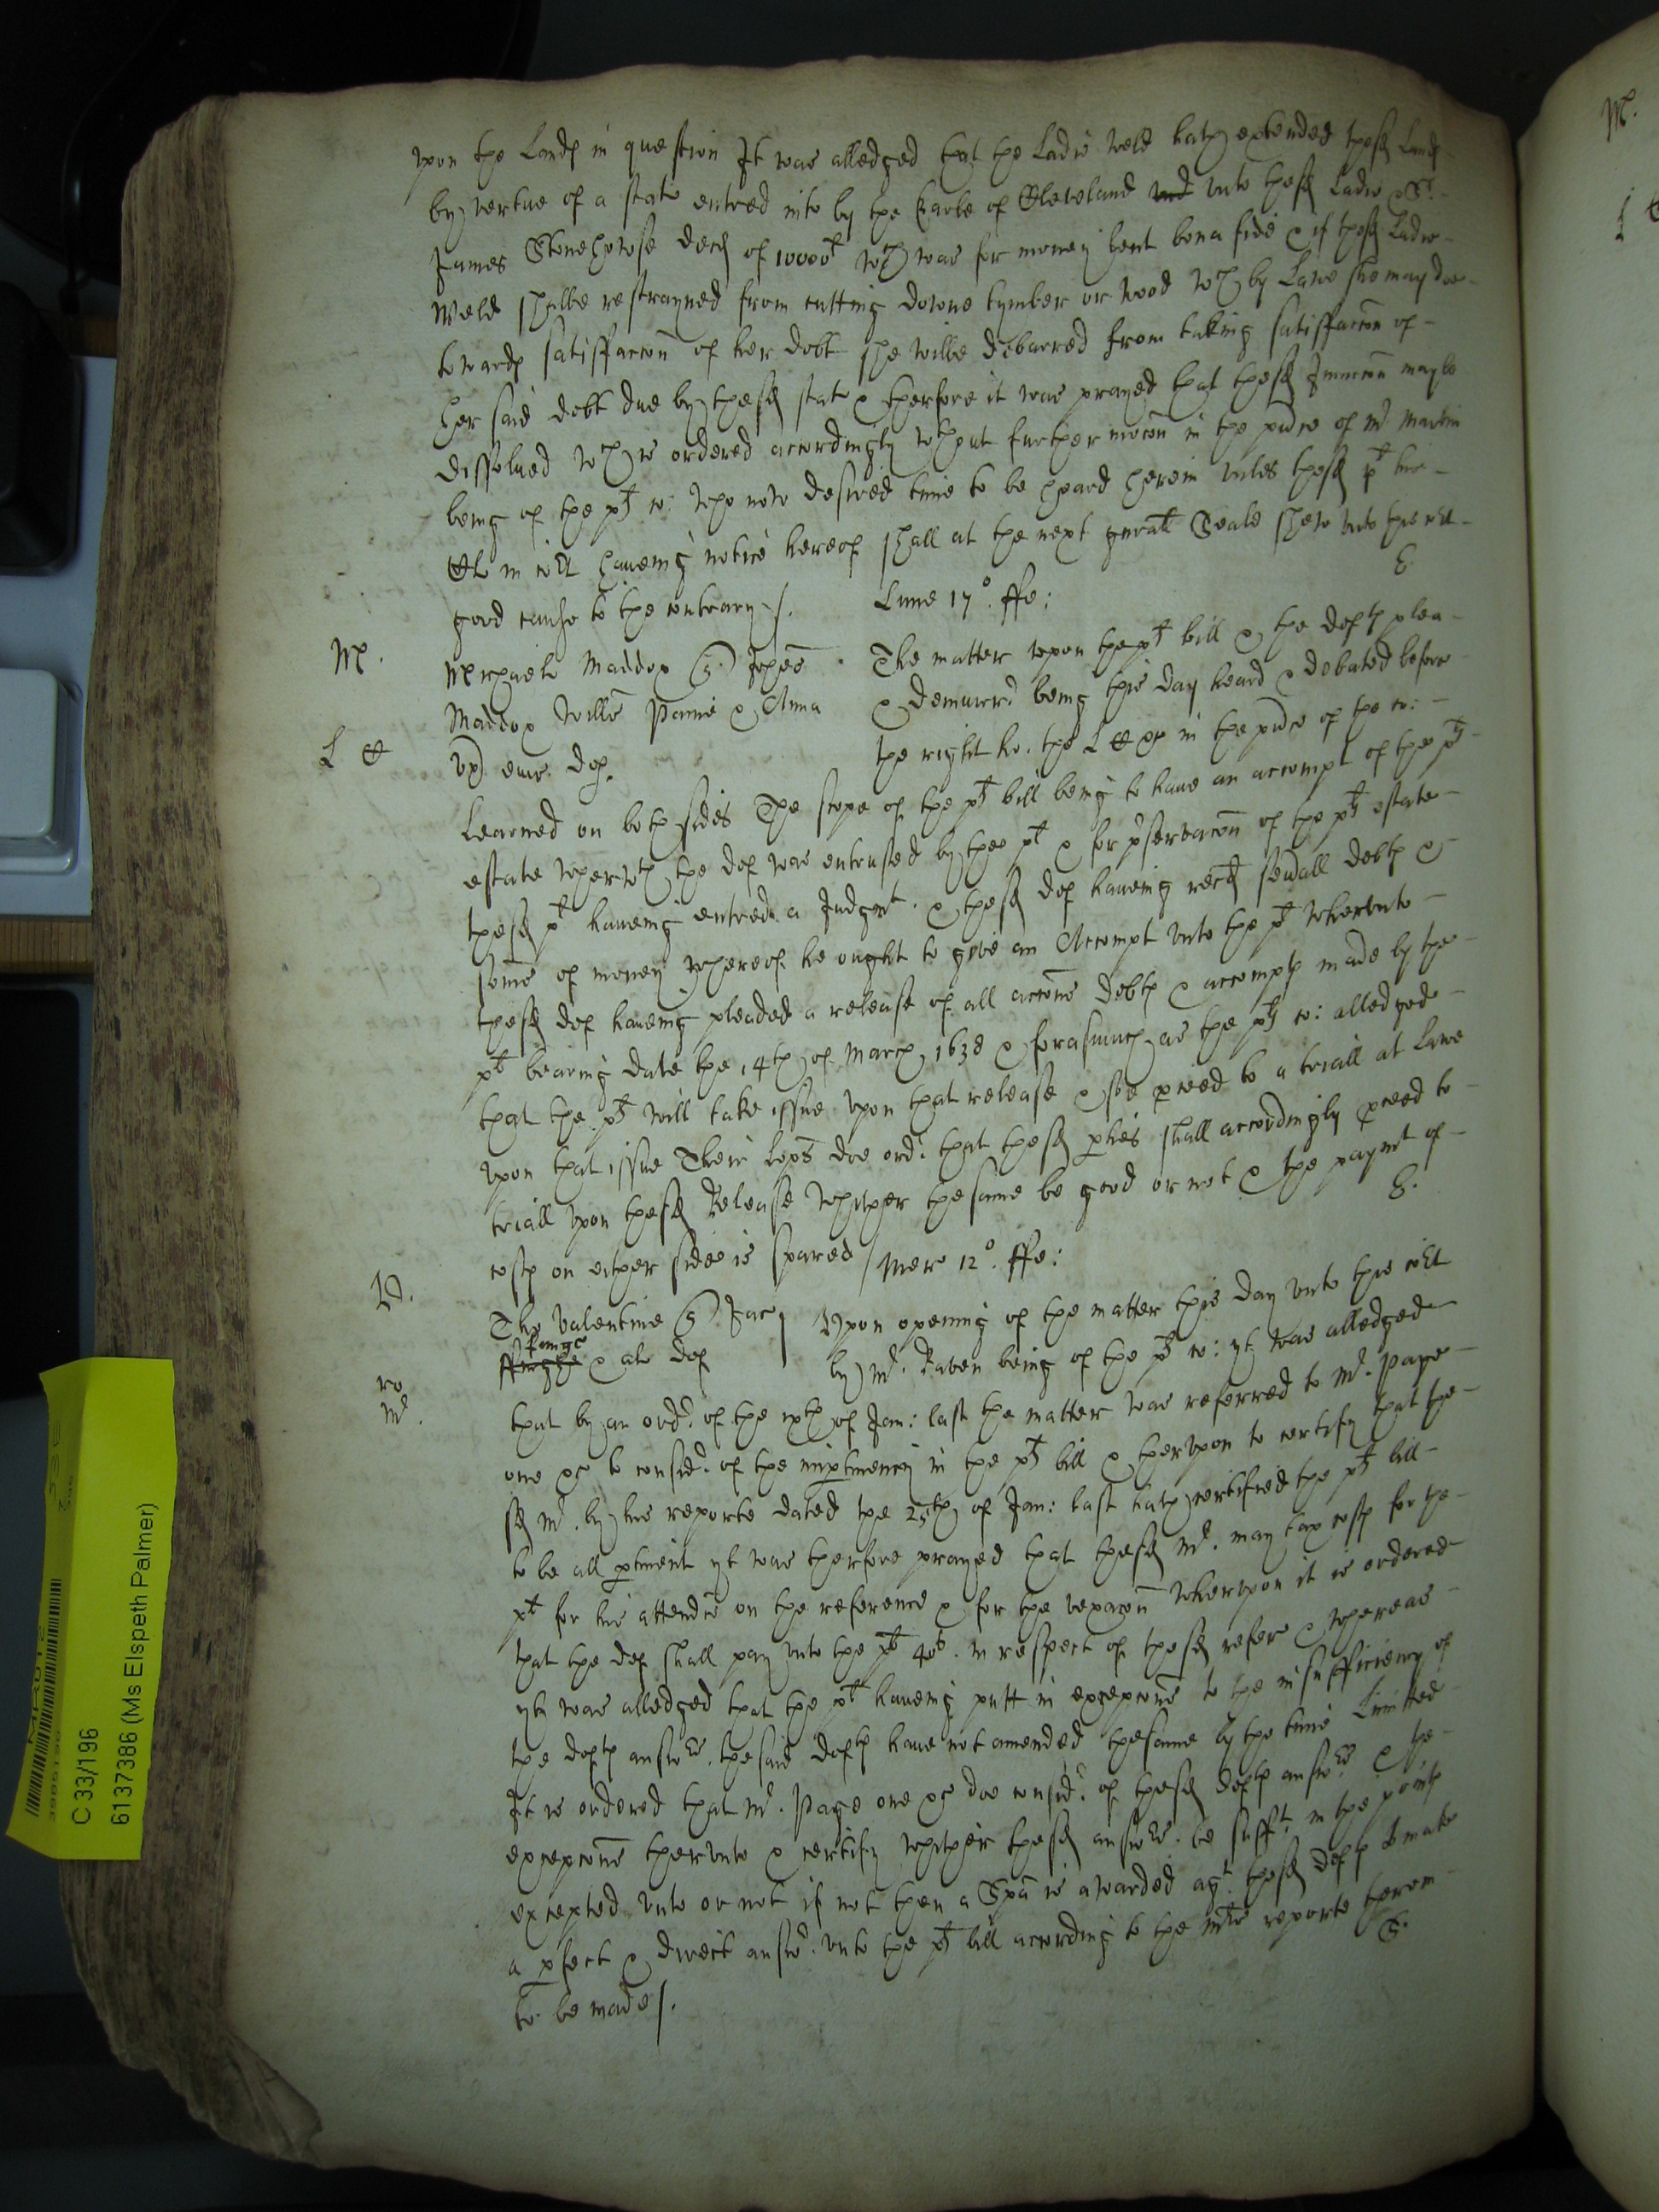 vpon the Land in question It was alledged that the Ladie Weld hath extended these Land
by vertue of a state entred into by the Earle of Cleveland vnto these Ladie & Sr.
James Stonehowse decd of 10000l wch was for money lent bona fide & if these Ladie
Weld shalbe restrayned from cutting downe tymber or wood wch by Lawe she may doe
towards satisfaccon of her debt she wilbe debarred from taking satisfaccon of
her said debt due by these state & therfore it was prayed that these Iniuncon maybe
dissolued wch is ordered accordingly wthout further mocon in the pnce of Mr Martin
being of the plts co: who now desired time to be heard herein vnles these plt his
Cle in cort haueing notice hereof shall at the next gnrall Seale shew vnto this cort
good cause to the contrary /.
E.
Lune 17o. ffe:
M.
Michaele Maddox q. Johes
Maddox Willm Paine & Anna
vx eius def
The matter vpon the plts bill & the defts plea
& demurrr being this day heard & debated before
L C
the right ho. the L C &c in the pnce of the co:
Learned on both sides The scope of the plts bill being to haue an accompt of the plts
estate wherwth the def was entrusted by the plt & for pservacon of the plts estate
these plt haueing entred a Judgmt. & these def haueing recd seuall debts &
somes of money whereof he ought to give an Accompt vnto the plt whervnto
these def haueing pleaded a release of all accons debts & accompts made by the
plt bearing date the 14th of March 1638 & forasmuch as the plts co: alledged
that the plt will take issue vpon that release & soe pceed to a triall at Lawe
vpon that issue Their lopps doe ordr. that these pties shall accordingly pceed to
triall vpon these Release whither the same be good or not & the paymt of
costs on either side is spared /
E.
Mer 12o. ffe:
D.
Tho Valentine q. Jac
ffinghe & al def
Vpon opening of the matter this day vnto this cort
by Mr. Raven being of the plts co: yt was alledged
ro
Mr.
that by an ordr. of the ixth of Jan: last the matter was referred to Mr. Page
one &c to considr. of the imptinency in the plts bill & thervpon to certify that the
sd Mr. by his reporte dated the 25th of Jan: last hath certified the plts bill
to be all ptinent yt was therfore prayed that these Mr. may tax costs for the
plt for his attendce on the reference & for the vexacon Whervpon it is ordered
that the def shall pay vnto the plt 40s. in respect of these refere & whereas
yt was alledged that the plt haueing putt in excepcons to the insufficiency of
the defts answr. the said defts haue not amended the same by the time Limitted
It is ordered that Mr. Page one &c doe considr. of these defts answr. & the
excepcons thervnto & certify whither these answr. be sufft. in the points
excepted vnto or not if not then a Spa is awarded agt. these defts to make
a pfect & direct answr. vnto the plts bill according to the Mrs reporte therein
to be made /.
C 33/196
6137386 (Ms Elspeth Palmer)